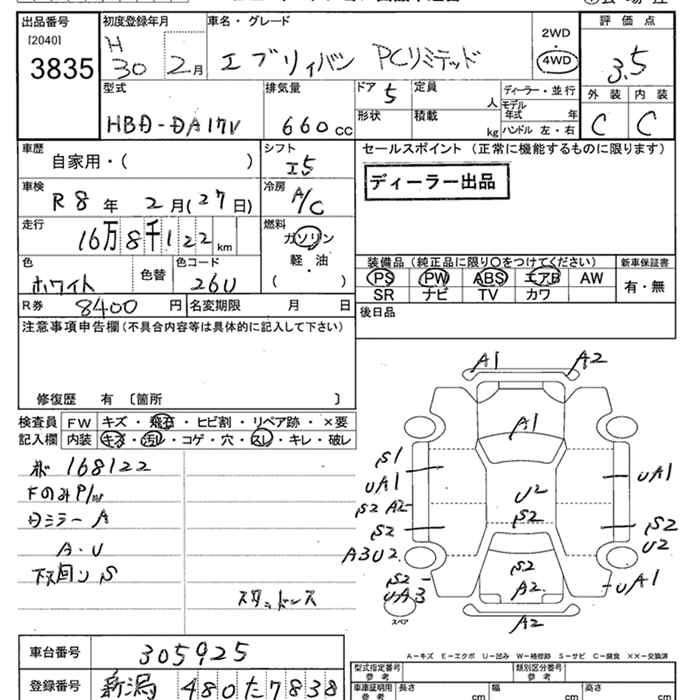 出品番号
[2040]
3835
初度登録年月
H
30 2月
車名・グレード
エブリィバン PCリミテッド
2WD
・
4WD
評価点
3.5
外装 内装
C C
型式
HBD-DA17V
排気量
660cc
ドア 5
形状
定員 人
積載 kg
ディーラー・並行
モデル年式 年
ハンドル 左・右
車歴
自家用・( )
シフト
I5
車検
R8年 2月(27日)
冷房
A/C
走行
16万8千122km
燃料
ガソリン
軽・油
・
( )
色
ホワイト
色替
色コード
26U
R券 8400円
名変期限 月 日
セールスポイント(正常に機能するものに限ります)
ディーラー出品
装備品(純正品に限り〇をつけてください)
PS PW ABS エアB AW
SR ナビ TV カワ
新車保証書
有・無
後日品
注意事項申告欄(不具合内容等は具体的に記入して下さい)
修復歴 有 〔箇所 〕
検査員
記入欄
FW キズ・飛石・ヒビ割・リペア跡・×要
内装 キズ・汚レ・コゲ・穴・スレ・キレ・破レ
168122
FのみP/W
日ミラー A
A・U
下回り S
スタッドレス
A1
A2
A1
S1
UA1
S2 A2
S2
A3U2
S2
UA3
スペア
U2
S2
S2
A2
A2
UA1
S2
U2
UA1
A-キズ E-エクボ U-凹み W-補修跡 S-サビ C-腐食 XX-交換済
車台番号 305925
登録番号 新潟 480 た 7838
型式指定番号 参考
類別区分番号 参考
車庫証明用 参考
長さ cm
幅 cm
高さ cm